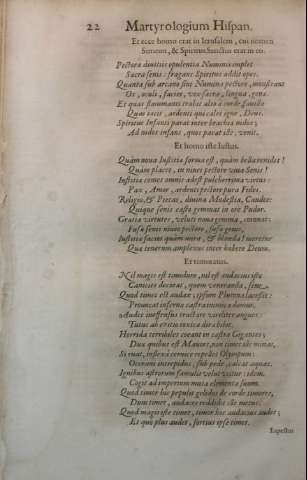 22 Martyrologium Hispan.
Et ecce homo erat in Ierusalem, cui nomen
Simeon, & Spiritus Sanctus erat in eo.
Pectora divitiis opulentia Numinis implet
Sacra senis: fragans Spiritus addit opes.
Quanta sub arcano sinu Numina pectore, monstrant
Os, oculi, facies, vox sacra, lingua, gena.
Et quas flammanti trahis alto à corde
Quas iacis, ardenti qui calet igne, Deo.
Spiritus Infanti parat inter brachia nidos;
Ad nidos infans, quos parat iste, venit.
Et homo iste Iustus.
Quàm nova Iustitiæ forma est, quàm bella
Quàm placet, in niveo pectore visa Senis!
Iustitiæ comes omnis adest pulcherrima virtus:
Pax, Amor, ardenti pectore pura Fides.
Religio, & Pietas, divina Modestia, Candor:
Quique senis casto geminat in ore Pudor.
Gratia virtutes, veluti nova gemma, coronat:
Fusa senis niveo pectore, fusa genis,
Iustitia facies quàm mira, & blanda! meretur
Quæ tenerum amplexus inter habere Deum.
Et timoratus.
Nil magis est timidum, nil est audacius isto
Canities decorat, quem veneranda, sene.
Quod timet est audax: ipsum
castra timenda,
Audet inoffensus tractare viriliter angues:
Tutus ab
Horrida terribiles coeant in castra Gigantes;
Dux quibus est Mavors, non timet ille minas,
Si ruat, infexâ cervice repellet Olympum:
Oceani intrepidus, sub pede, calcat aquas.
Ignibus astrorum famulis velut utitur: idem
Cogit ad imperium muta elementa suum.
Quod timet hoc populis gelidos de corde timores,
Dum timet, audaces reddidit esse metus.
Quod magis iste timet, timor hoc audacius audet;
Et quò plus audet, fortius ipse timet.
Expectas